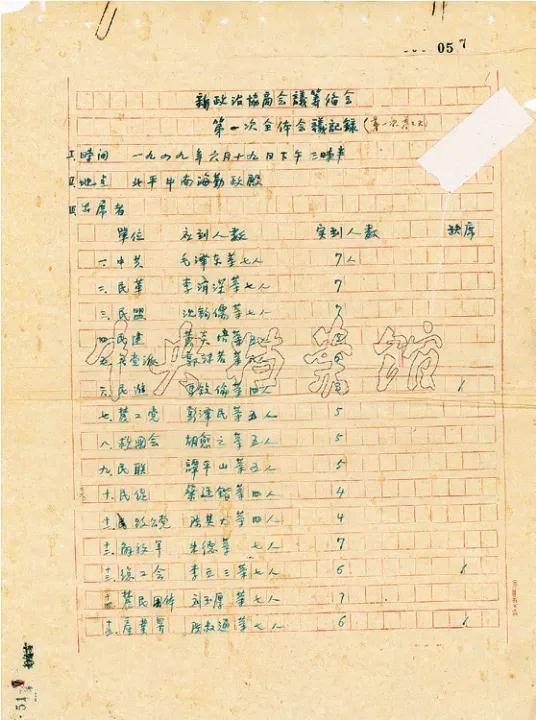 057
新政治協商会議筹备会
第一次全体会議記録
I.時間 一九四九年六月十九日下午三時半
II.地点 北平中南海勤政殿
III.出席者
單位 应到人数 实到人数 缺席
一.中共 毛澤东等七人 7人
二.民革 李濟深等七人 7
三.民盟 沈鈞儒等七人 7
四.民建 黄炎培等
五. 郭沫若等
六.民進 馬敘倫等四人 3 1
七.農工党 彭澤民等五人 5
八.救国会 胡愈之等五人 5
九.民联 譚平山等五人 5
十.民促 蔡廷鍇等四人 4
十一.致公党 陈其尤等四人 4
十二.解放軍 朱德等 七人 7
十三.總工会 李立三等七人 6 1
十四.農民团体 刘玉厚等七人 7
十五.產業界 陈叔通等七人 6 1
中央档案館
51